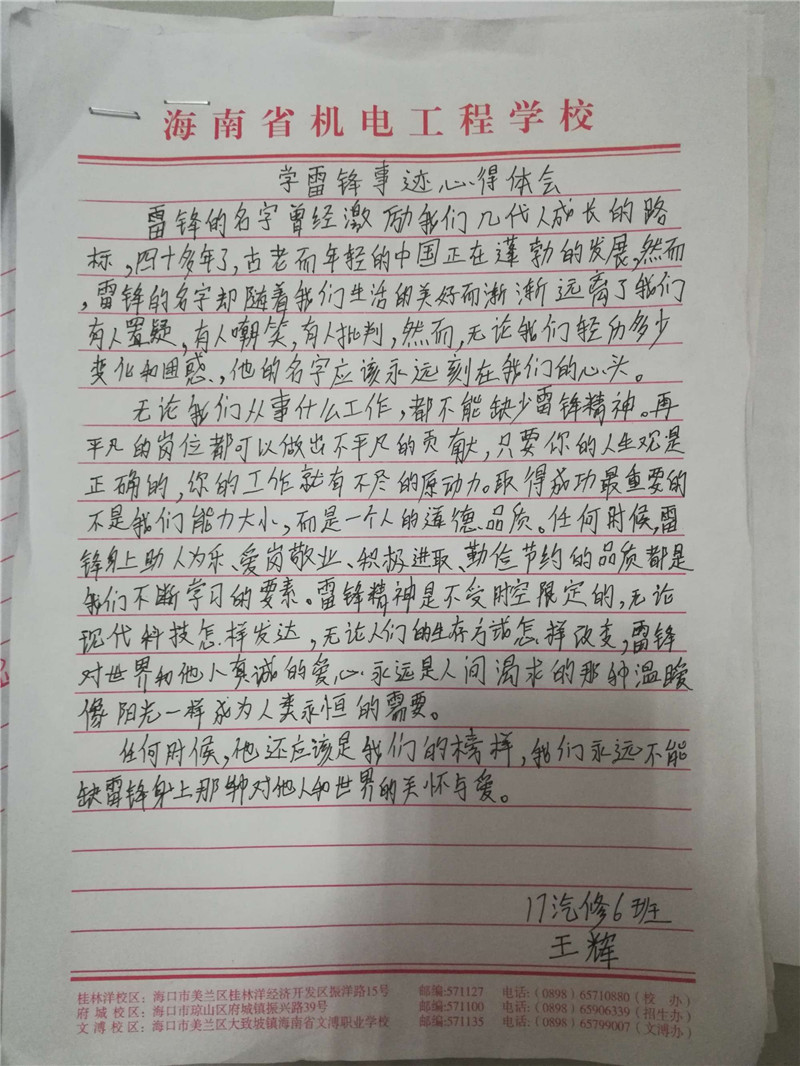 海南省机电工程学校
学雷锋事迹心得体会
雷锋的名字曾经激励我们几代人成长的路
标,四十多年了,古老而年轻的中国正在蓬勃的发展,然而
,雷锋的名字却随着我们生活的美好而渐渐远离了我们
有人置疑,有人嘲笑,有人批判,然而,无论我们轻历多少
变化和困惑、,他的名字应该永远刻在我们的心头。
无论我们从事什么工作,都不能缺少雷锋精神。再
平凡的岗位都可以做出不平凡的贡献,只要你的人生观是
正确的,你的工作就有不尽的原动力。取得成功最重要的
不是我们能力大小,而是一个人的道德品质。任何时候,雷
锋身上助人为乐、爱岗敬业、积极进取、勤俭节约的品质都是
我们不断学习的要素。雷锋精神是不受时空限定的,无论
现代科技怎样发达,无论人们的生存方式怎样改变,雷锋
对世界和他人真诚的爱心永远是人间渴求的那种温暖
像阳光一样成为人类永恒的需要。
任何时候,他还应该是我们的榜样,我们永远不能
缺雷锋身上那种对他人和世界的关怀与爱。
17汽修6班
王辉
桂林洋校区：海口市美兰区桂林洋经济开发区振洋路15号 邮编:571127 电话:（0898）65710880(校 办)
府城校区：海口市琼山区府城镇振兴路39号 邮编:571100 电话:（0898）65906339(招生办)
文溥校区：海口市美兰区大致坡镇海南省文溥职业学校 邮编:571135 电话:（0898）65799007(文溥办)